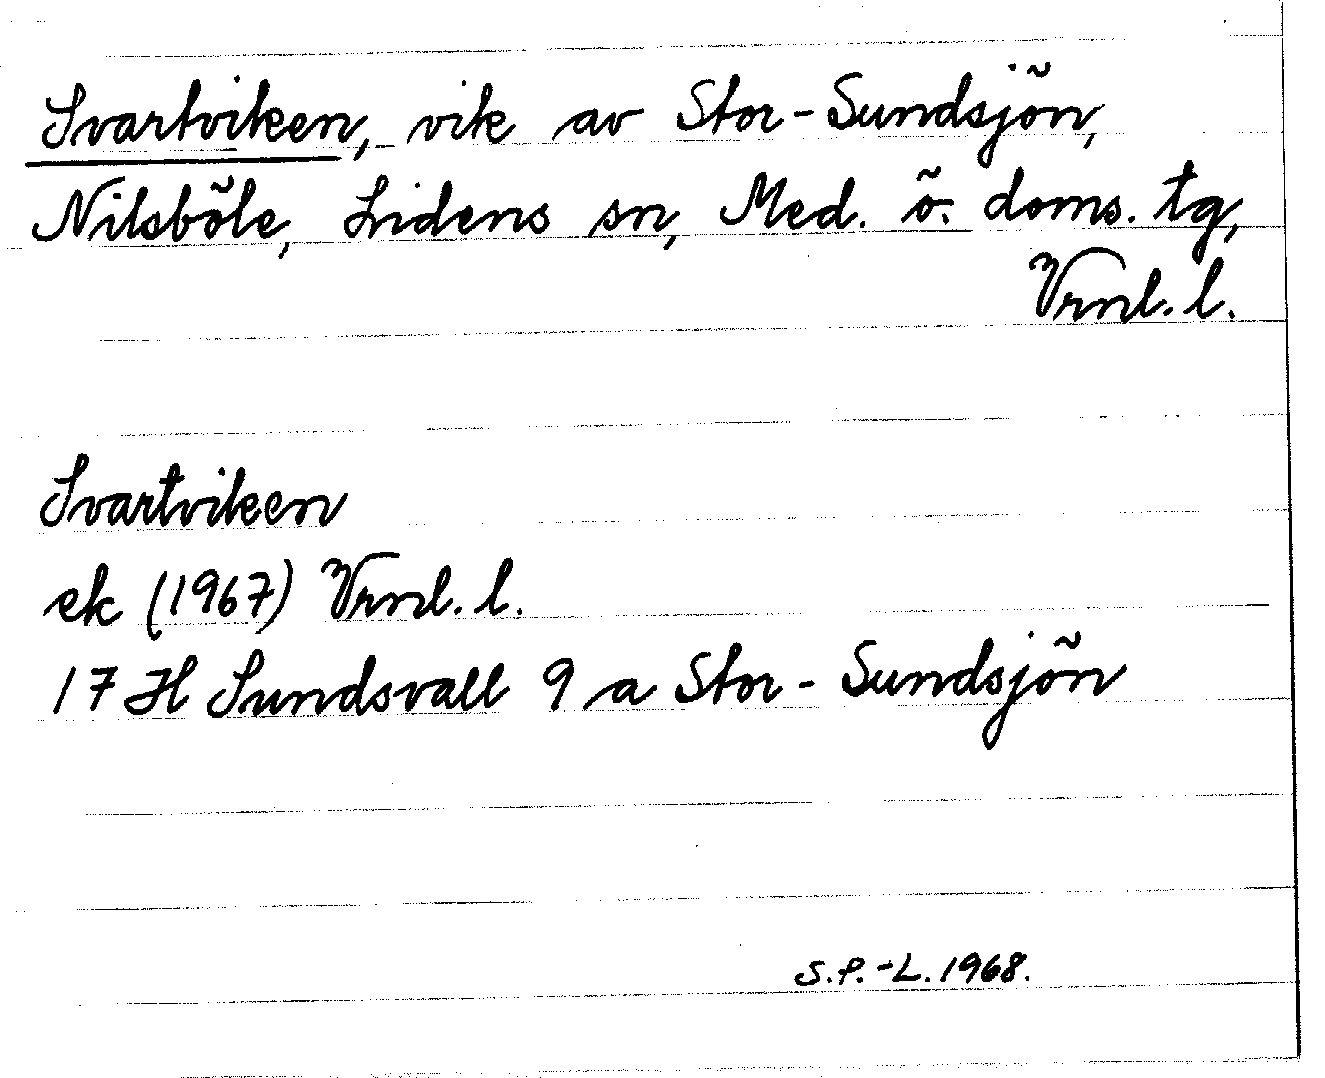 Svartviken, vik av Stor-Sundsjön,
Nilsböle, Lidens sn, Med. ö. doms. tg,
Vrnl. l.
Svartviken
ek (1967) Vrnl. l.
17 H Sundsvall 9 a Stor-Sundsjön
S.P.-L. 1968.